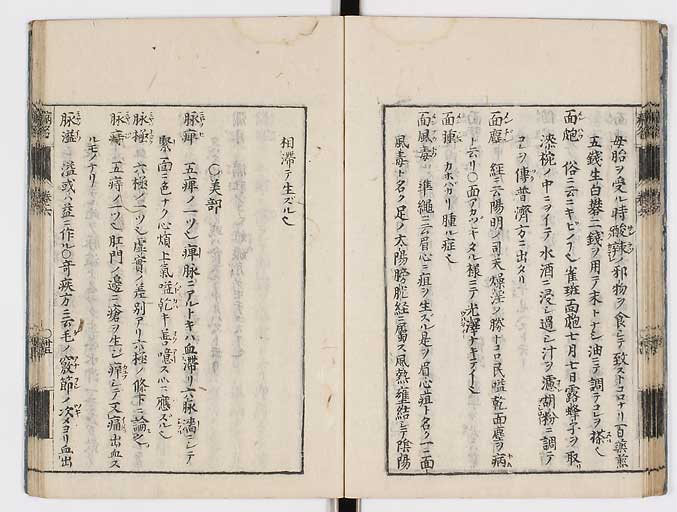 母胎ヲ受ル時酸辣ノ邪物ヲ食シテ致ストコロナリ百藥煎
五錢生白礬二錢ヲ用テ末トナシ油ニテ調テコレヲ搽ヘ
面皰 俗ニ云ニキビノ丁 雀斑面皰七月七日露蜂子ヲ取
漆椀ノ中ニヲイテ水酒ニ浸シ過シ汁ヲ濾胡粉ニ調テ
コレヲ傅普濟方ニ出タリ
面塵 經ニ云陽明ノ司天燥淫ノ勝トコロ民嗌乾面塵ヲ病
ト云リ○面アカツキタル様ニテ光澤ナキテイ
面腫 カホバカリ腫ル症
面風毒 準繩ニ云眉心ニ疽ヲ生スル是ヲ眉心疽ト名ク一ニ面
風毒ト名ク足ノ太陽膀胱經ニ屬ス風熱壅結シテ陰陽
相滯テ生ズル
○美部
脉痺 五痺ノ一ツ 痺脉ニアルトキハ血滯リ六脉濇ニシテ
緊面ニ色ナク心煩上氣嗌乾キ善噫スルニ應ズル
脉極 六極ノ一ツ 虚實ノ差別アリ六極ノ條下ニ論
脉痔 五痔ノ一ツ 肛門ノ邊ニ瘡ヲ生ジ痺シテ又痛出血ス
ルモノナリ
脉溢 溢或ハ益ニ作ル○奇疾方ニ云毛ノ竅節ノ次ヨリ血出